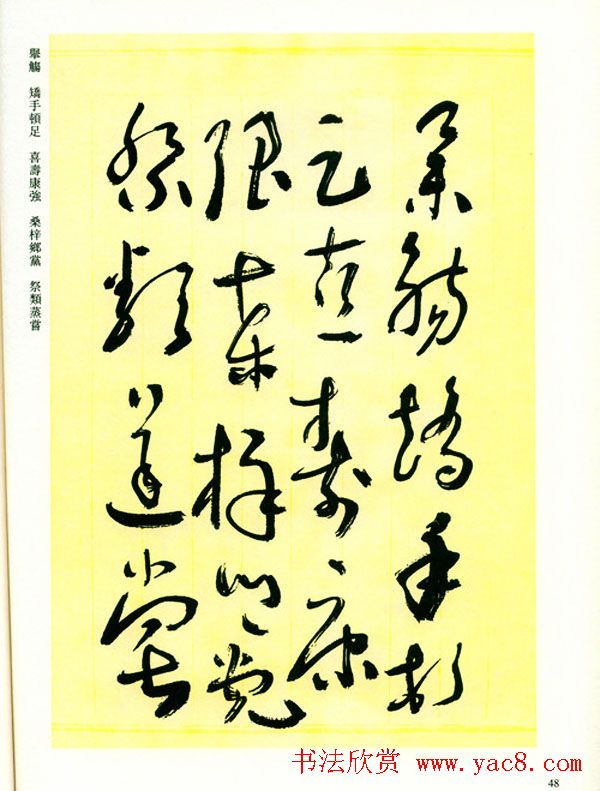 舉觴矯手頓
足喜壽康
強桑梓鄉黨
祭類蒸嘗
舉觴　矯手頓足　喜壽康強　桑梓鄉黨　祭類蒸嘗
书法欣赏 www.yac8.com
48